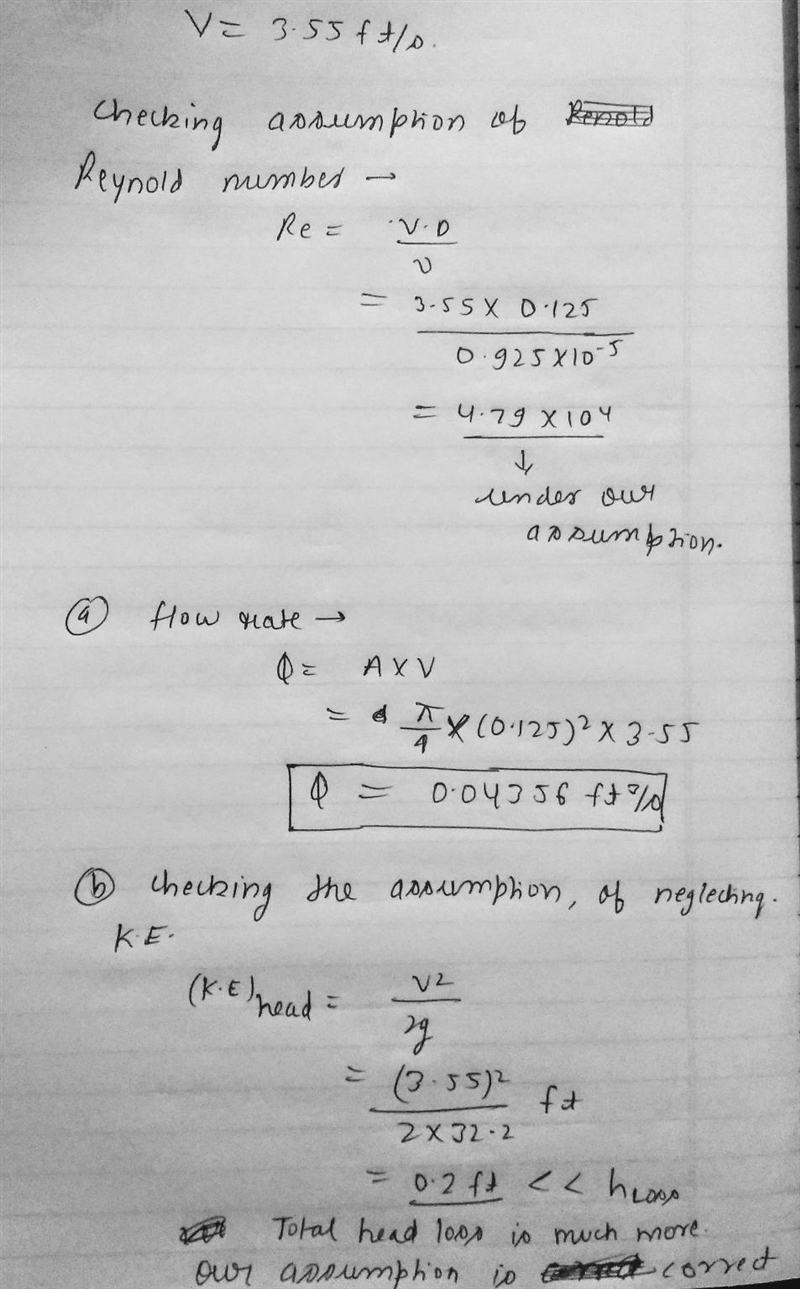 V = 3.55 ft/s.
Checking assumption of
Reynold number →
Re = V.D / ν
= 3.55 X 0.125 / 0.925 X 10^-5
= 4.79 X 10^4
↓
under our
assumption.
(a) flow rate →
Q = A X V
= π/4 X (0.125)² X 3.55
Q = 0.04356 ft³/s
(b) checking the assumption, of neglecting.
K.E.
(K.E)head = V² / 2g
= (3.55)² / 2 X 32.2 ft
= 0.2 ft << hLoss
Total head loss is much more.
our assumption is correct